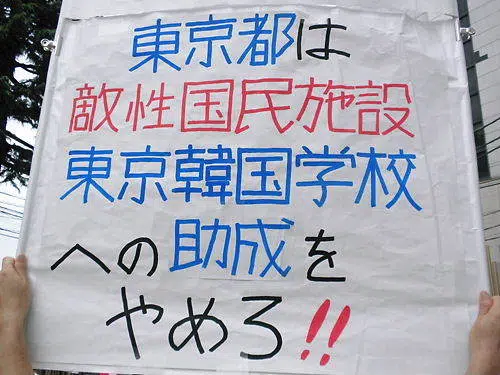 東京都は
敵性国民施設
東京韓国学校
への助成を
やめろ!!